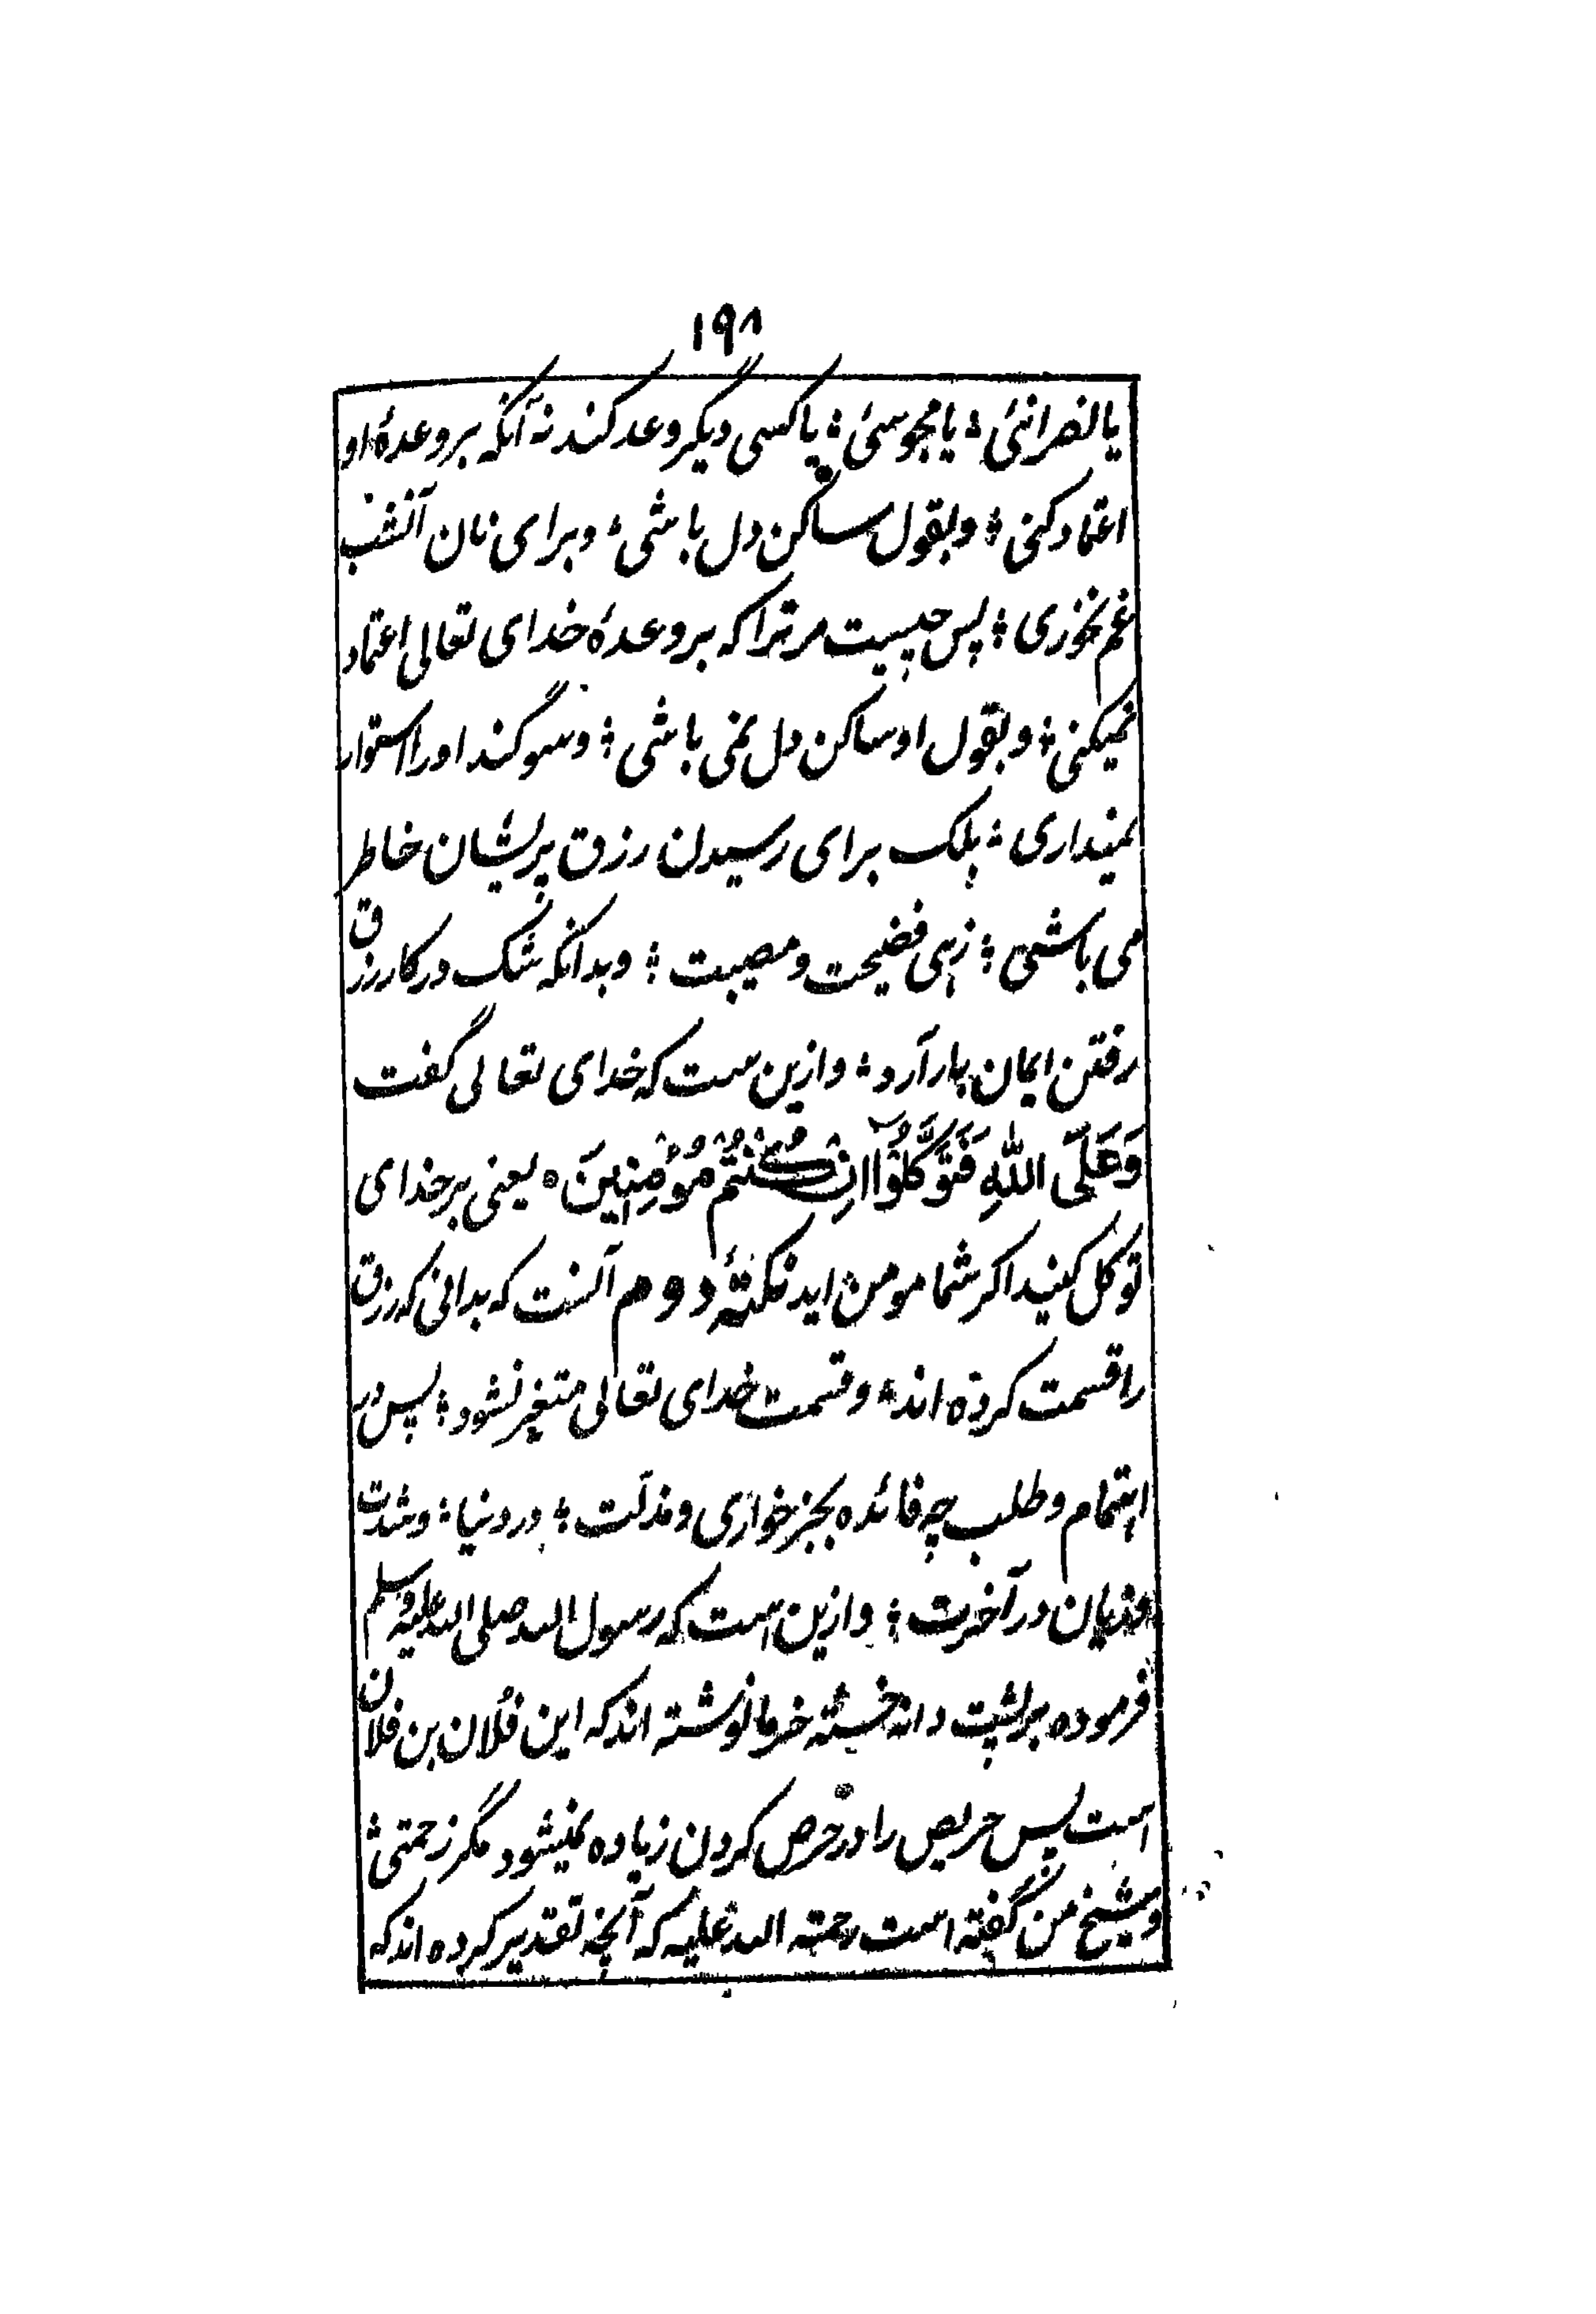 ۱۹۸
یا نصرانئی ؛ یا مجوسئ ؛ یا کسی دیگر وعد کند نه آنکه بر وعدۀ او
اعتماد کنی ؛ و بقول ساکن دل باشی ؛ و برای نان آنشب
غم نخوری ؛ پس چیست مر ترا که بر وعدۀ خدای تعالی اعتماد
نمیکنی ؛ و بقول او ساکن دل نمی باشی ؛ و سوگند او را استوار
نمیداری ؛ بلک برای رسیدن رزق پریشان خاطر
می باشی ؛ زهی فضیحت و مصیبت ؛ و بدانکه شک در کار رزق
رفتن ایمان بار آرد ؛ و ازین ست که خدای تعالی گفت
وَعَلَی اللّٰهِ فَتَوَکَّلُوْٓا اِنْ کُنْتُمْ مُؤْمِنِیْنَ ه یعنی بر خدای
توکل کنید اکر شما مومن اید نکتۀ دوم آنست که بدانی که رزق
را قسمت کرده اند ؛ و قسمت خدای تعالی متغیر نشود ؛ پس در
اهتمام و طلب چه فائده بجز خواری و مذلت ؛ در دنیا ؛ و شدت
و زیان در آخرت ؛ و ازین است که رسول الله صلی الله علیه وسلم
فرموده بر پشت دانه خسته خرما نوشته اند که این فُلان بن فلان
است پس حریص را در حرص کردن زیاده نمیشود مگر زحمتی ؛
و شیخ من گفته است رحمته الله علیه که آنچه تقدیر کرده اند که